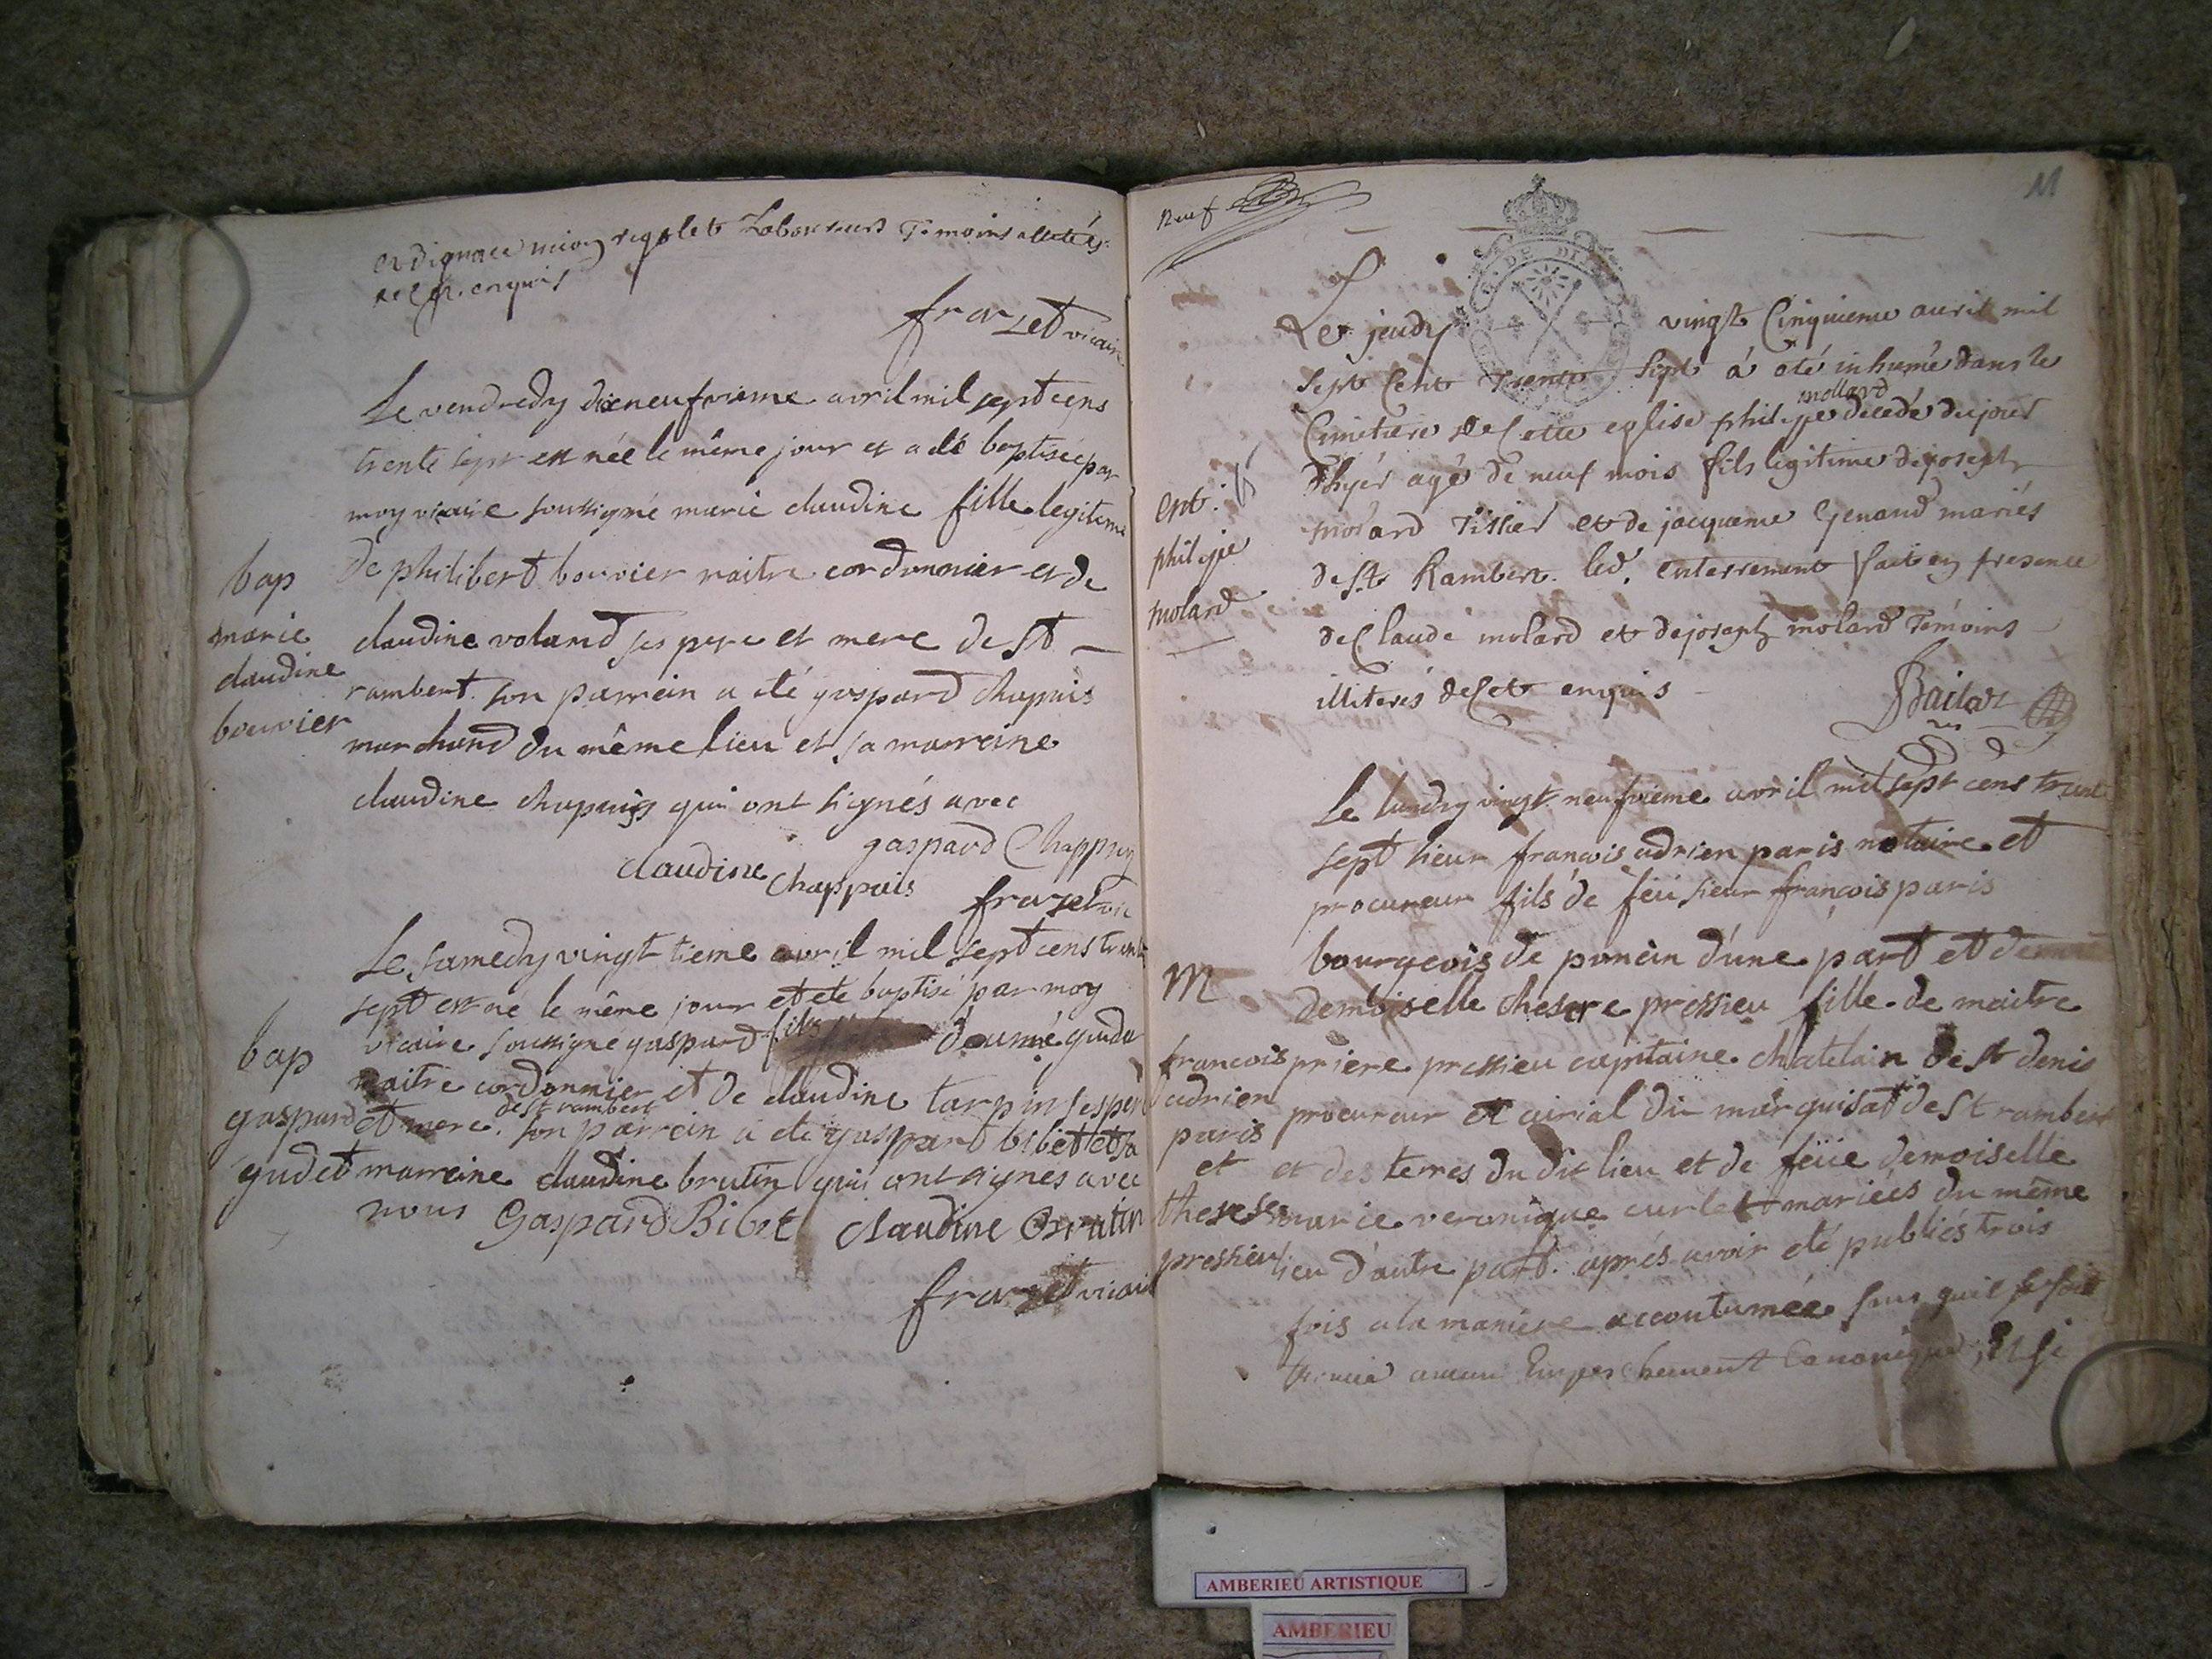 et d'ignace mion rigolet Laboureurs Temoins illiterés
de ce enquis
frazet vicaire
Le vendredy dixneufvieme avril mil sept cens
trente sept est née le même jour et a été baptisée par
moy vicaire soussigné marie claudine fille legitime
bap
De philibert bouvier maitre cordonnier et de
marie
claudine voland ses pere et mere de St
claudine
rambert. son parrein a été gaspard chapuis
bouvier
marchand du même lieu et sa marreine
claudine chapuiss qui ont signés avec
gaspard Chappuy
claudine chappuis
frazet vic
Le samedy vingt tieme avril mil sept cens trente
sept est ne le même jour et ete baptisé par moy
bap
vicaire soussigne gaspard fils d'aumé gudet
maitre cordonnier et de claudine tarpin ses pere
de st rambert
gaspard
et mere. son parrein a été gaspard bibet et sa
gudet
marreine claudine brutin qui ont signés avec
nous Gaspard Bibet claudine Brutin
frazet vicaire
11
Neuf
Le jeudy vingt Cinquieme avril mil
Sept Cent Trente Sept á eté inhumé dans le
mollard
Cimetiere de Cette eglise philipe decedé du jour
d'hyer agé de neuf mois fils legitime de joseph
ent.
philipe
molard
molard Tissier et de jacqueme Genaud mariés
de St Rambert. led. enterrement fait en presence
de Claude molard et de joseph molard Témoins
illiterés de ce enquis
Bailat
Le lundy vingt neufvieme avril mil sept cens trent
sept sieur francois adrien paris notaire et
procureur fils de feu sieur francois paris
bourgeois de poncin d'une part et de
M
demoiselle therese pressieu fille de maitre
francois
priere pressieu capitaine chatelain de st denis
adrien
procureur et curial du marquisat de St rambert
paris
et
et des terres du dit lieu et de feüe demoiselle
therese
marie veronique curlet mariées du même
pressieu
lieu d'autre part. aprés avoir eté publiés trois
fois a la maniere accoutumée sans qu'il se soit
trouvé aucun Empeschement Canonique,
AMBERIEU ARTISTIQUE
AMBERIEU